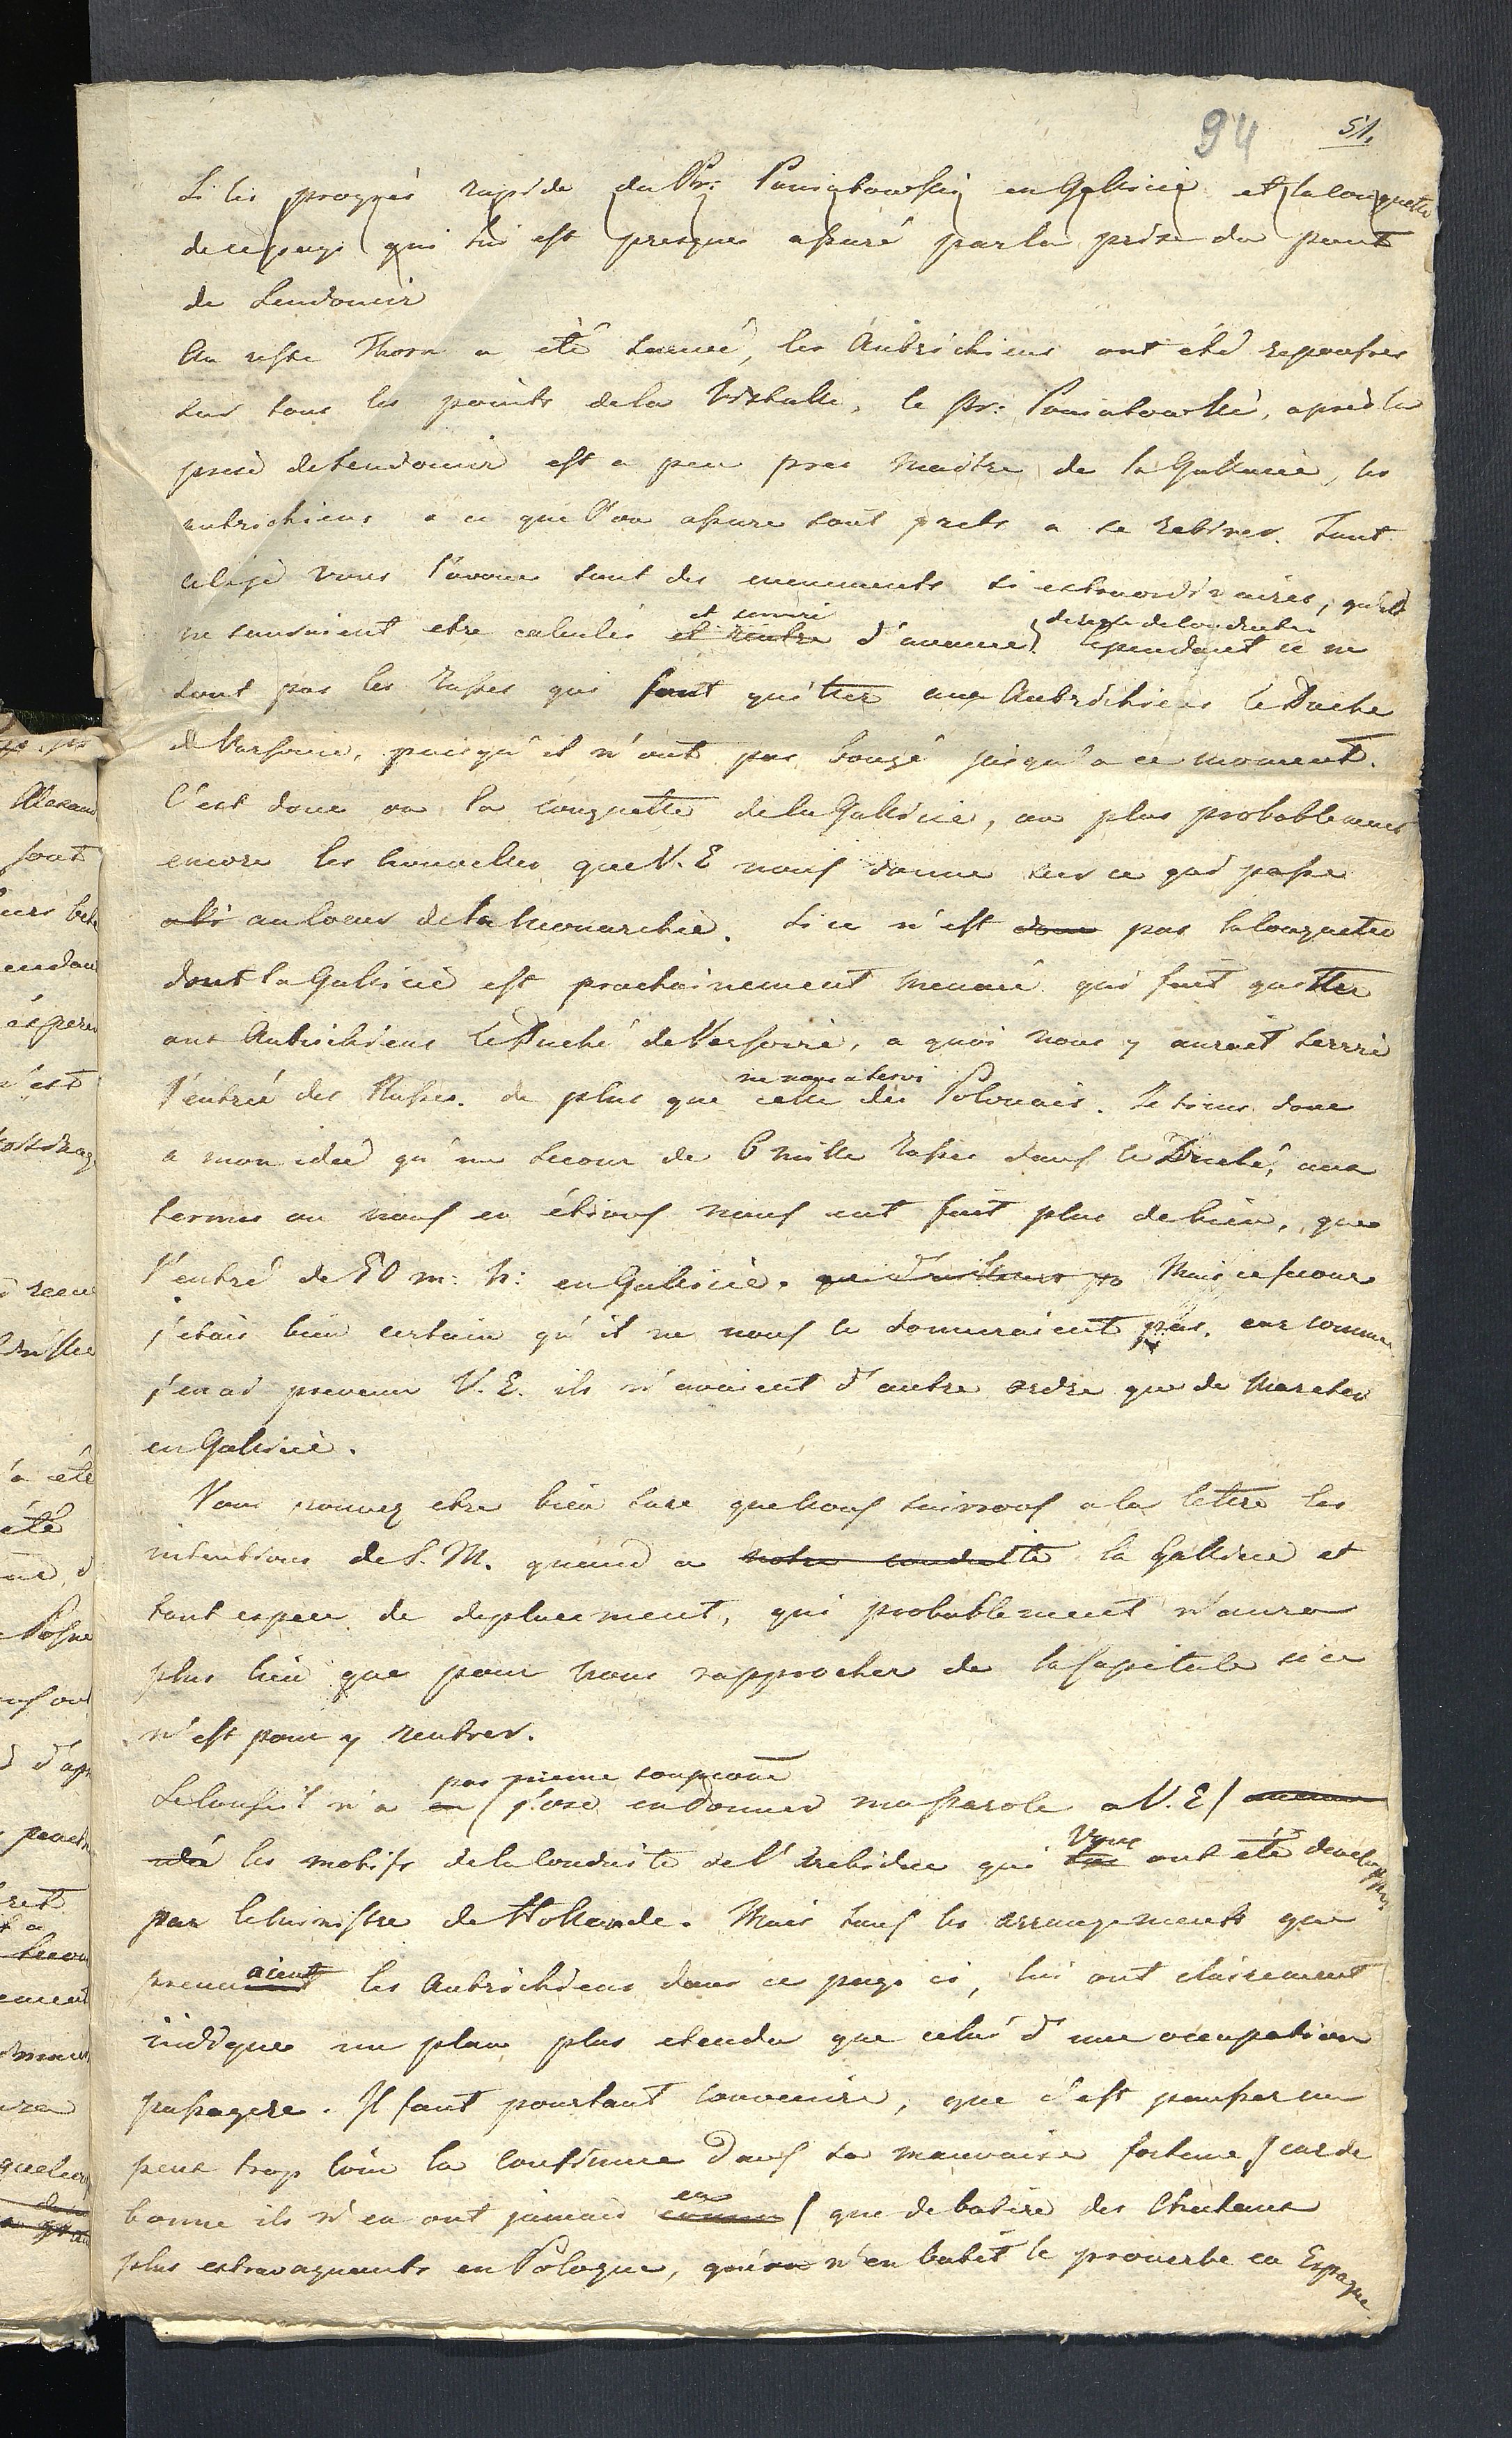 94 51.
Si les progrès rapide du Pr: Poniatowski en Gallicie et la conquette
de ce pays qui lui est presques assuré par la prise du pont
de Sendomir
Au reste Thorn a été sauvé, les Autrichiens ont été repousses
sur tous les points de la Vistulle, le Pr: Poniatowski, après la
prise de Sendomir est a peu pres maitre de la Gallicie, les
autrichiens a ce que l'on assure sont prets a se retirer. Tout
cela je vous l'avoue sont des evenements si extraordinaires, qu'ils
et
ne sauroient etre calculés et d'avance. Cependant ce ne
sont pas les Russes qui font quitter aux Autrichiens le Duché
de Varsovie, puisqu'il n'ont pas bougé jusqu'a ce moment.
C'est donc ou la conquette de la Gallicie, ou plus probablement
encore les nouvelles que V. E nous donne sur ce qui passe
au coeur de la Monarchie. Si ce n'est donc pas la conquette
dont la Gallicie est prochainement menacé qui fait quitter
aux Autrichiens le Duché de Varsovie, a quoi nous y auroit servi
ne nous a servi
l'entrée des Russes. de plus que celle des Polonais. Je tiens donc
a mon idée qu'un secour de 6 mille Russes dans le Duché, aux
termes ou nous en étions nous eut fait plus de bien, que
l'entré de 50 m: h: en Gallicie. que d'ailleurs Mais ce secours
j'étais bien certain qu'il ne nous le donneraient pas. car comme
j'en ai prevenu V. E. ils n'avaient d'autre ordre que de marcher
en Gallicie.
Vous pouvez etre bien sure que nous suivrons a la lettre les
intentions de S. M. quand a notre conduitte la Gallicie et
tout espece de deplacement, qui probablement n'aura
plus lieu que pour nous rapprocher de la Capitale si ce
n'est pour y rentrer.
pas meme soupçoné
Le Conseil n'a en (j'ose en donner ma parole a V. E) aucune
Vous
idée les motifs de la Conduite de l'Archiduc qui ont été developpés
par le ministre de Hollande. Mais tous les arrangements que
aient
prenn les Autrichiens dans ce pays ci, lui ont clairement
indiqué un plan plus etendu que celui d'une occupation
passagere. Il faut pourtant convenire, que c'est pousser un
peux trop loin la confiance dans sa mauvaise fortune (car de
eu
bonne ils n'en ont jamais connu) que de batire des Chateaux
plus extravaguants en Pologne, qu'on n'en batit le proverbe en Espagne.